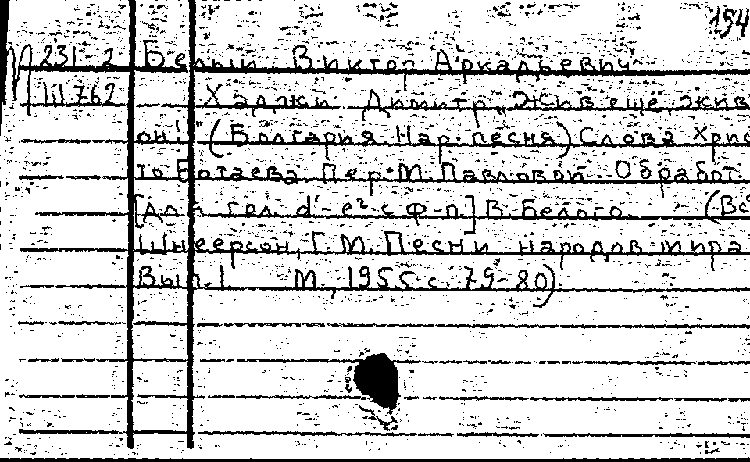 154
М 231-2 Белый Виктор Аркадьевич
III 762 Хаджи Димитр „Жив еще, жив
он!" (Болгария. Нар. песня) Слова Хрис
то Ботева Пер. М. Павловой Обработ.
[для гол. d'-e² с ф-п] В. Белого. - (Вс
Шнеерсон, Г.М. Песни народов мира
Вып. 1 М., 1955 с. 79-80)